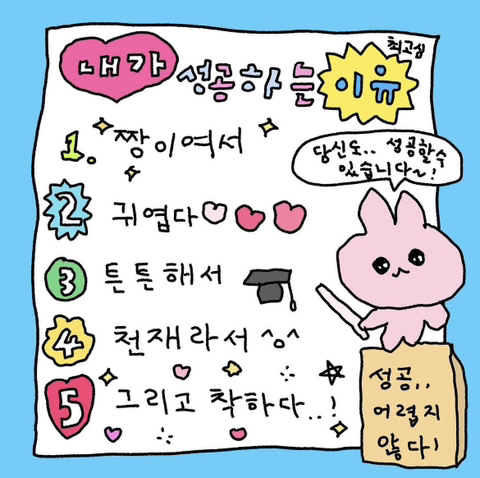 내가 성공하는 이유
최고심
1. 짱이여서
2 귀엽다
3 튼튼해서
4 천재라서 ^o^
5 그리고 착하다..!
당신도.. 성공할수
있습니다~!
성공..
어렵지
않다!